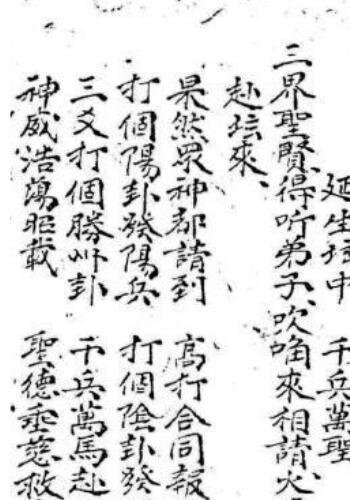 延生坛中　千兵萬聖
三界聖賢得听弟子吹唃來相請火
赴坛來
果然眾神都請到　高打合同報
打個陽卦發陽兵　打個陰卦發
三爻打個勝卦　千兵萬馬赴
神威浩蕩昭載　聖德垂慈救